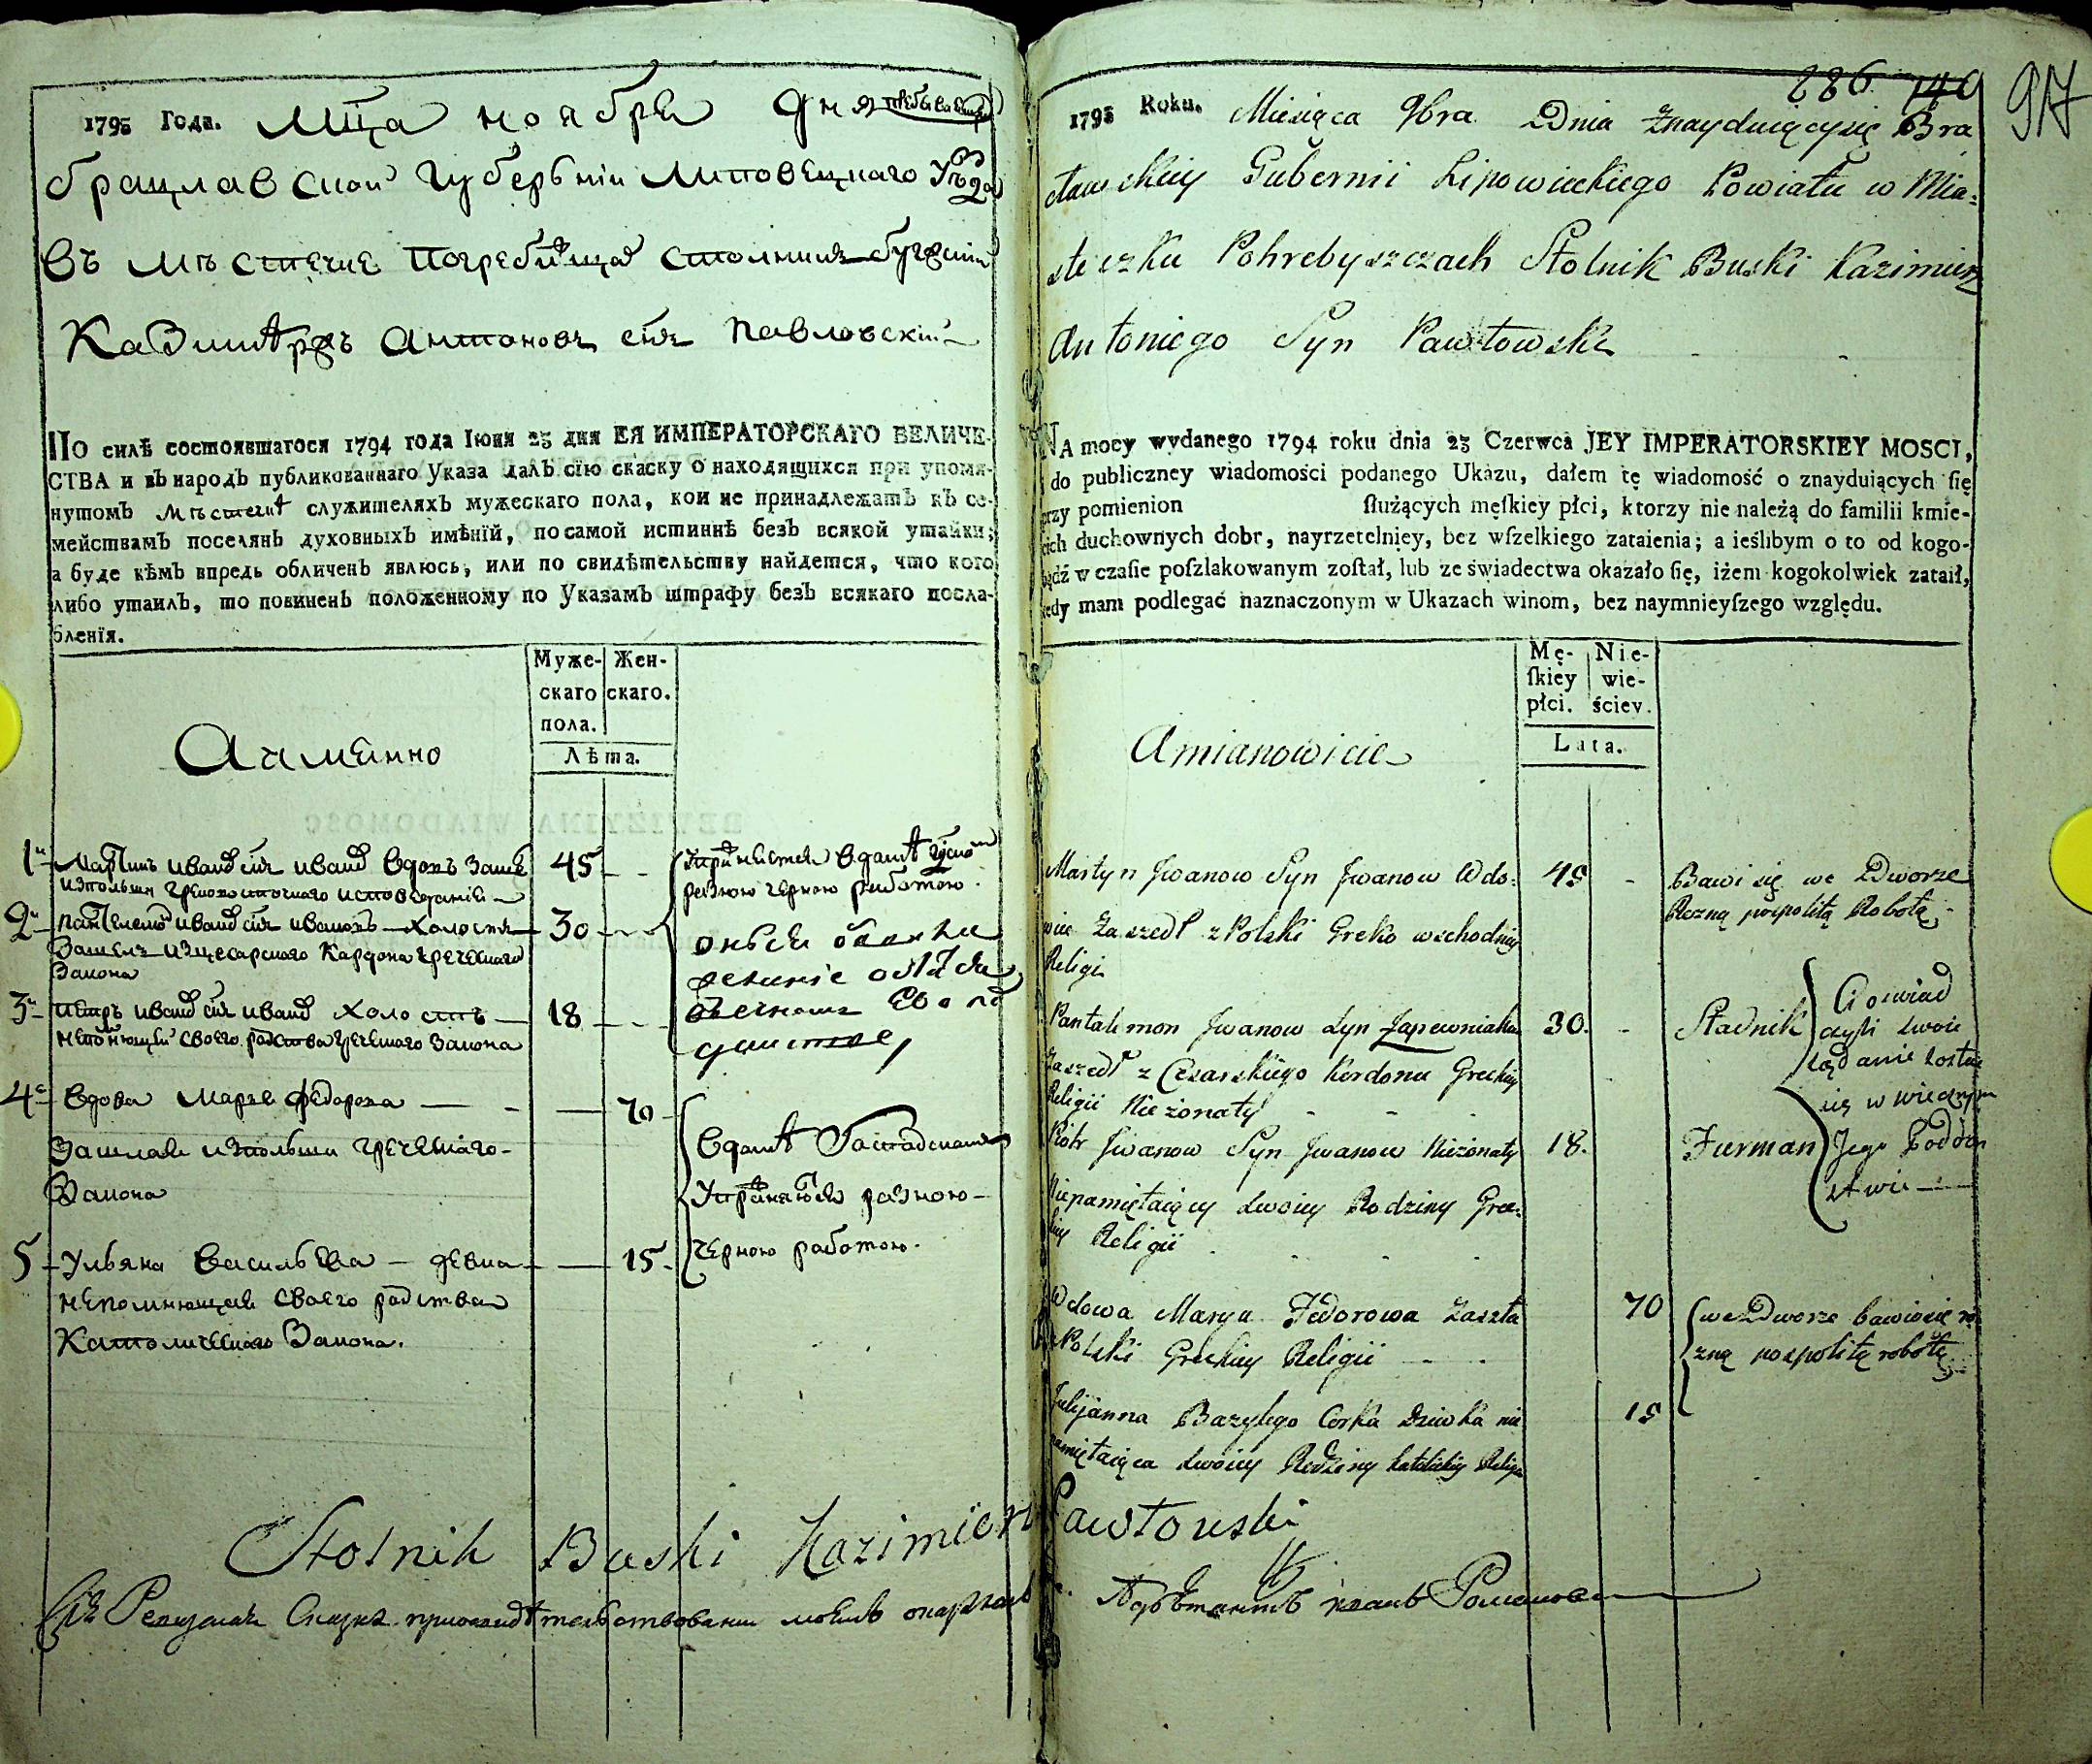 1795 Года. Мца ноября дня
брацлавской губернии Липовецкаго Уезда
въ местечке Погребища столникъ буский
Казимеръ Антоновъ снъ Павловский
ПО силѣ состоявшагося 1794 года Іюня 23 дня ЕЯ ИМПЕРАТОРСКАГО ВЕЛИЧЕ-
СТВА и въ народъ публикованнаго Указа далъ сїю скаску о находящихся при упомя-
нутомъ местечке служителяхъ мужескаго пола, кои не принадлежатъ къ се-
мействамъ поселянъ духовныхъ имѣнїй, по самой истиннѣ безъ всякой утайки;
а буде кѣмъ впредь обличенъ явлюсь, или по свидѣтельству найдется, что кого
либо утаилъ, то повиненъ положенному по Указамъ штрафу безъ всякаго посла-
бленїя.
Муже- Жен-
скаго скаго.
пола.
Лѣта.
А именно
1 Мартинъ иванов снъ иванов вдовъ заше 45
изполши грековосточнаго исповедания
разною черною работою.
2 Пантелемон иванов снъ холостъ 30
зашелъ изцесарскаго Кардона греческаго
Закона
3 Петръ иванов снъ иванов холостъ 18
непомнющий своего родства греческаго закона
4 Вдова Марья Федорова 70
Зашлая изполши греческаго
Закона
Упражняются разною
черною работою.
5 Ульяна Васильева – девка 15
непомнющая своего родства
Католическаго Закона.
226 140 97
1795 Roku. Miesiąca 9bra Dnia Znayduiący się Bra
cławskiey Gubernii Lipowieckiego Powiatu w Mia=
steczku Pohrebyszczach Stolnik Buski Kazimierz
Antoniego Syn Pawłowski
NA mocy wydanego 1794 roku dnia 23 Czerwca JEY IMPERATORSKIEY MOSCI,
do publiczney wiadomości podanego Ukazu, dałem tę wiadomość o znayduiących ſię
przy pomienion ſłużących męſkiey płci, ktorzy nie należą do familii kmie-
cich duchownych dobr, nayrzetelniey, bez wſzelkiego zataienia; a ieślibym o to od kogo-
bądź w czaſie poſzlakowanym zoſtał, lub ze świadectwa okazało ſię, iżem kogokolwiek zataił,
tedy mam podlegać naznaczonym w Ukazach winom, bez naymnieyſzego względu.
Mę- Nie-
ſkiey wie-
płci. ściey.
Lata.
Amianowicie
Martyn Jwanow Syn Jwanow Wdo= 45 Bawi się we Dworze
wiec Zaszedł z Polski Greko wschodniey Rożną pospolitą Robotą
Religi
Pantalemon Jwanow Syn 30. Stadnik
Zaszedł z Cesarskiego Kordonu Greckiey
Religii Nieżonaty
Piotr Jwanow Syn Jwanow Nieżonaty 18. Furman
Niepamiętaiący swoiey Rodziny Grec=
kiey Religii
Wdowa Marya Fedorowa Zaszła 70 we Dworze bawiące ro
z Polski Greckiey Religii żną pospolitą robotą
Julijanna Bazylego Corka Dziwka nie 15
pamiętaiąca swoiey Rodziny katolickiey Religi
Stolnik Buski Kazimierz Pawłowski